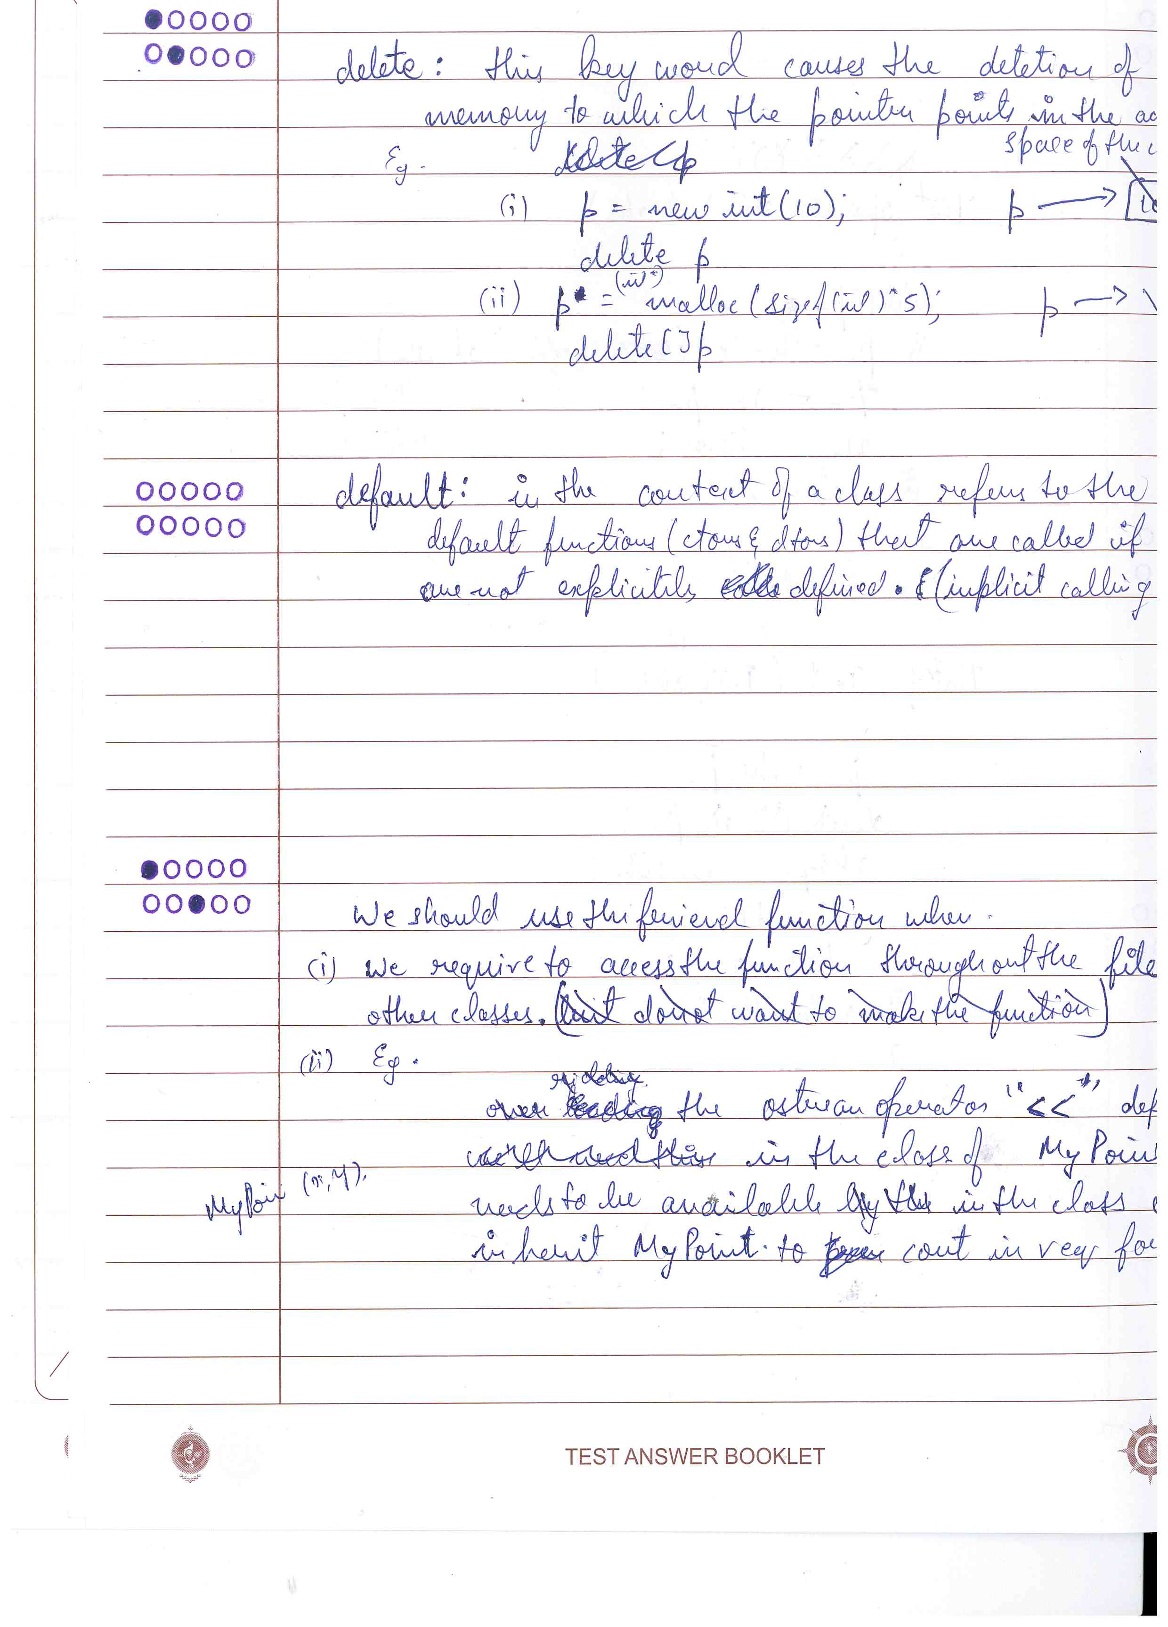 delete: this key word causes the deletion of
memory to which the pointer points in the
space of the
Eg.
(i) p = new int(10); p →
delete p
(int*)
(ii) p = malloc(sizeof(int)*5); p →
delete[]p
default: in the context of a class refers to the
default functions (ctors & dtors) that are called if
are not explicitly defined. (implicit calling
We should use the friend function when.
(i) we require to access the function throughout the file
other classes. (but donot want to make the function)
(ii) Eg.
over the ostream operator "<<"
in the class of MyPoin
MyPoin (x,y).
needs to be available in the class
inherit MyPoint. to cout in req fo
TEST ANSWER BOOKLET